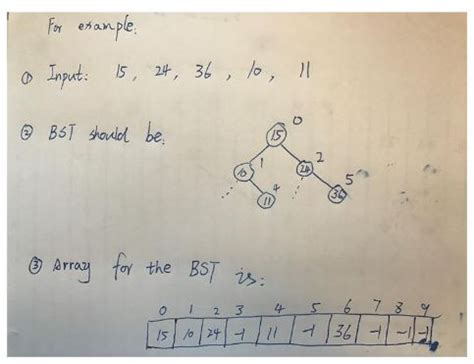 For example:
① Input: 15, 24, 36, 10, 11
② BST should be:
0
15
1 2
10 24
4 5
11 36
③ Array for the BST is:
0 1 2 3 4 5 6 7 8 9
15 10 24 -1 11 -1 36 -1 -1 -1